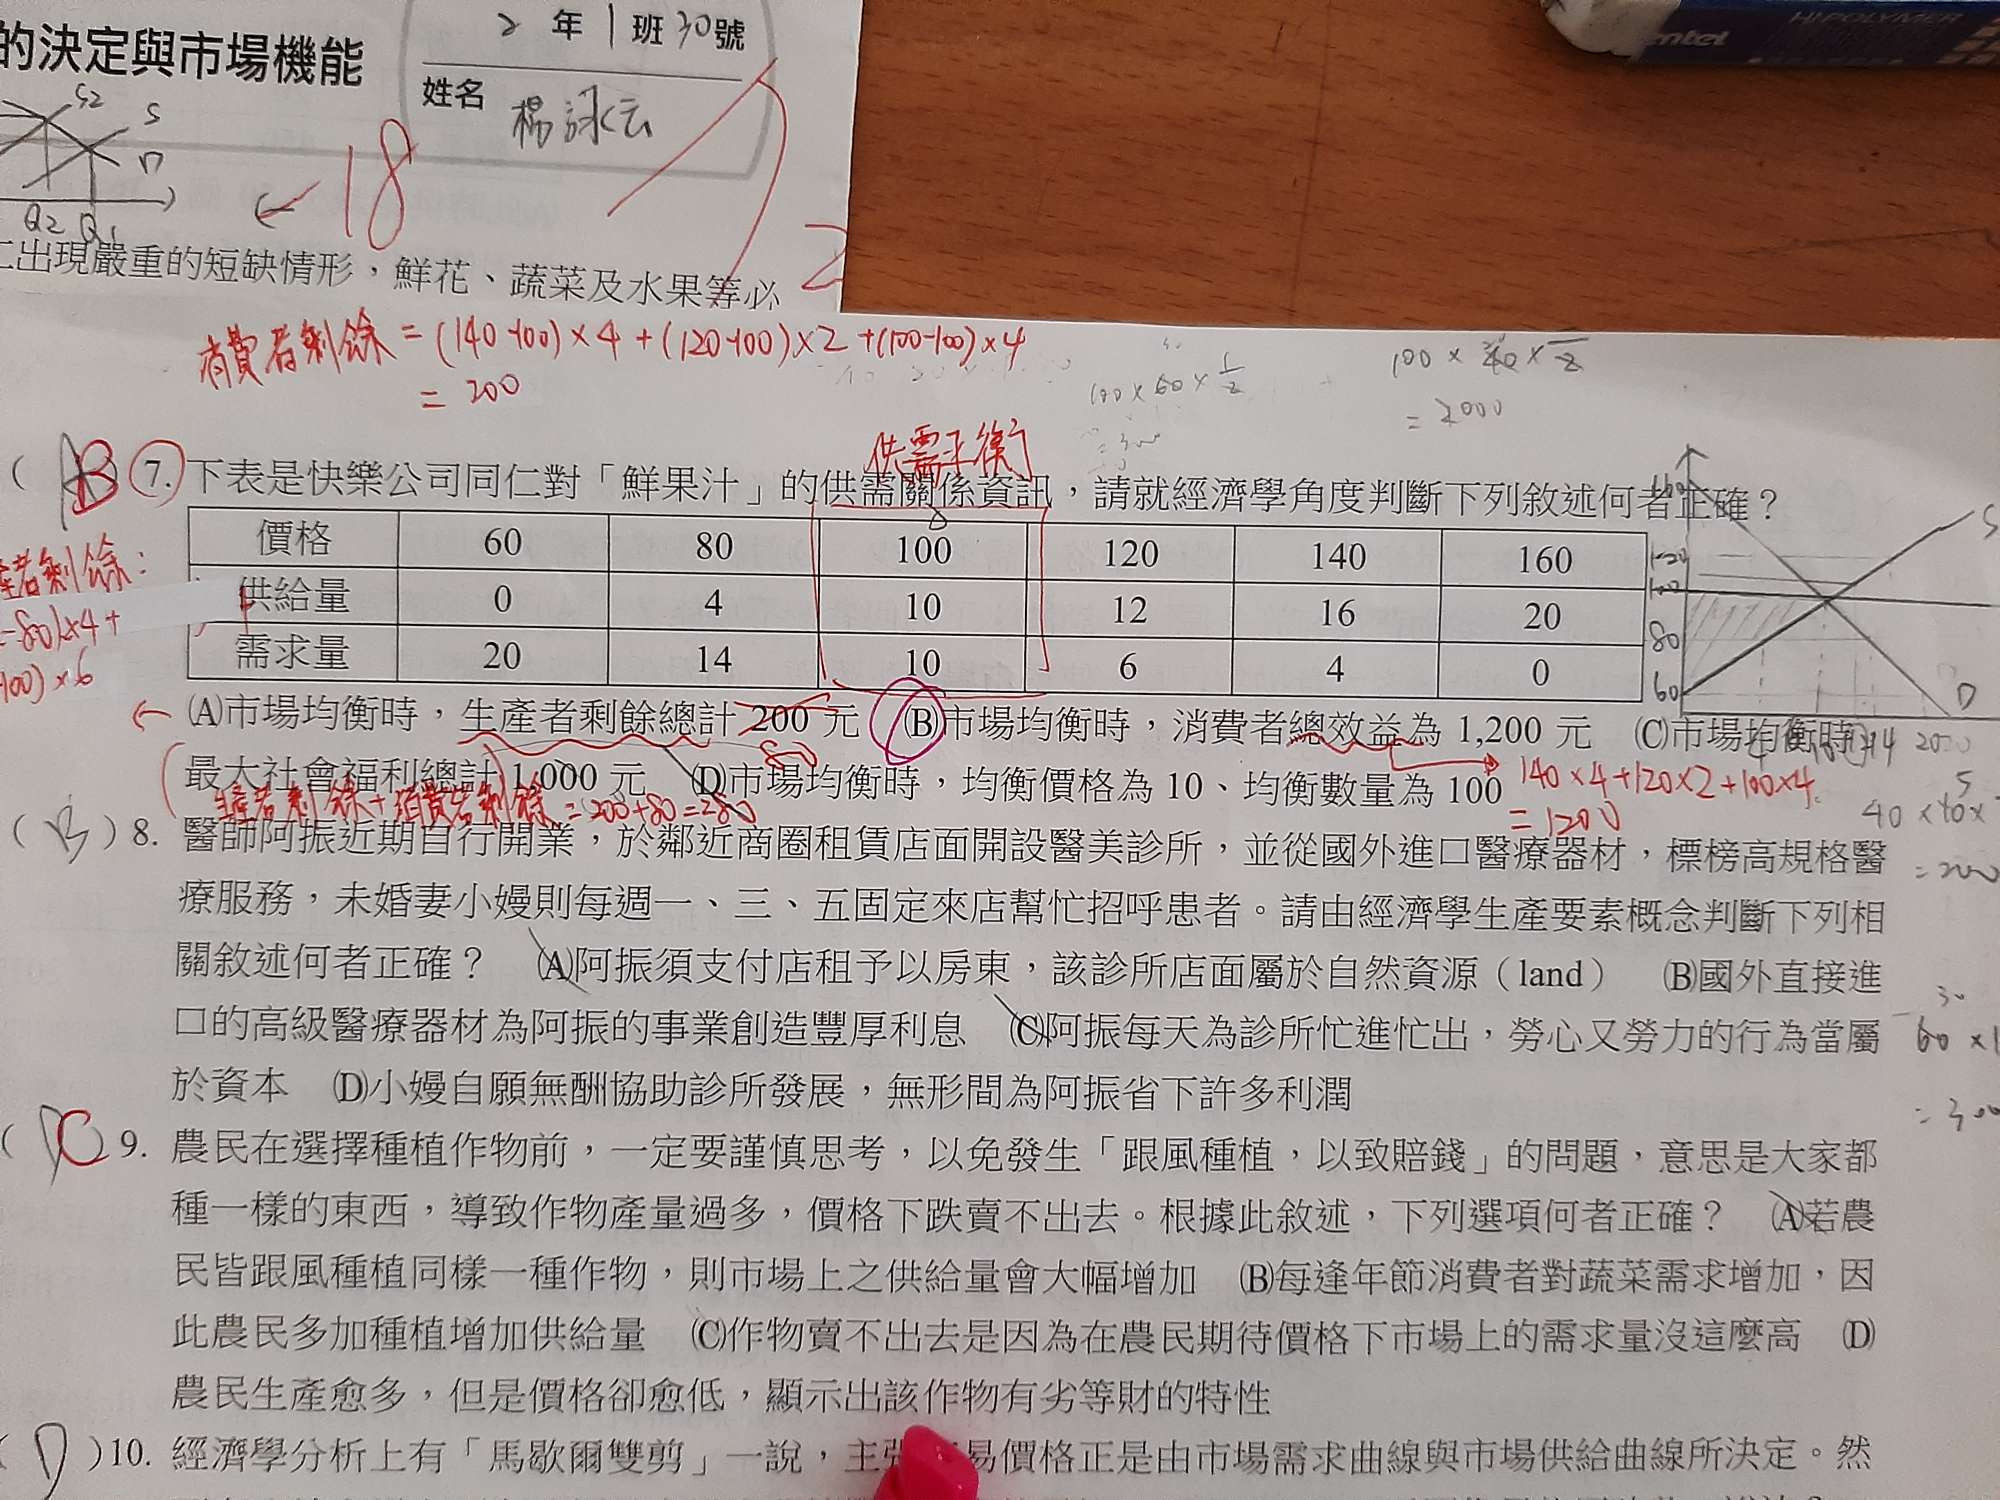 的決定與市場機能
2 年 1 班 30 號
姓名 楊詠云
S2
S
D
Q2 Q1
18
出現嚴重的短缺情形，鮮花、蔬菜及水果等必
HI-POLYMER
消費者剩餘 = (140-100)×4+(120-100)×2+(100-100)×4
= 200
100×60×1/2
= 2000
供需平衡
(B) 7. 下表是快樂公司同仁對「鮮果汁」的供需關係資訊，請就經濟學角度判斷下列敘述何者正確？
價格 60 80 100 120 140 160
供給量 0 4 10 12 16 20
需求量 20 14 10 6 4 0
者剩餘：
-80)×4+
100)×6
S
120
100
80
60
D
(A)市場均衡時，生產者剩餘總計 200 元 (B)市場均衡時，消費者總效益為 1,200 元 (C)市場均衡時，
80
最大社會福利總計 1,000 元 (D)市場均衡時，均衡價格為 10、均衡數量為 100
140×4+120×2+100×4
= 1200
生產者剩餘+消費者剩餘=200+80=280
(B) 8. 醫師阿振近期自行開業，於鄰近商圈租賃店面開設醫美診所，並從國外進口醫療器材，標榜高規格醫
療服務，未婚妻小嫚則每週一、三、五固定來店幫忙招呼患者。請由經濟學生產要素概念判斷下列相
關敘述何者正確？ (A)阿振須支付店租予以房東，該診所店面屬於自然資源（land） (B)國外直接進
口的高級醫療器材為阿振的事業創造豐厚利息 (C)阿振每天為診所忙進忙出，勞心又勞力的行為當屬
於資本 (D)小嫚自願無酬協助診所發展，無形間為阿振省下許多利潤
(C) 9. 農民在選擇種植作物前，一定要謹慎思考，以免發生「跟風種植，以致賠錢」的問題，意思是大家都
種一樣的東西，導致作物產量過多，價格下跌賣不出去。根據此敘述，下列選項何者正確？ (A)若農
民皆跟風種植同樣一種作物，則市場上之供給量會大幅增加 (B)每逢年節消費者對蔬菜需求增加，因
此農民多加種植增加供給量 (C)作物賣不出去是因為在農民期待價格下市場上的需求量沒這麼高 (D)
農民生產愈多，但是價格卻愈低，顯示出該作物有劣等財的特性
(D) 10. 經濟學分析上有「馬歇爾雙剪」一說，主張易價格正是由市場需求曲線與市場供給曲線所決定。然